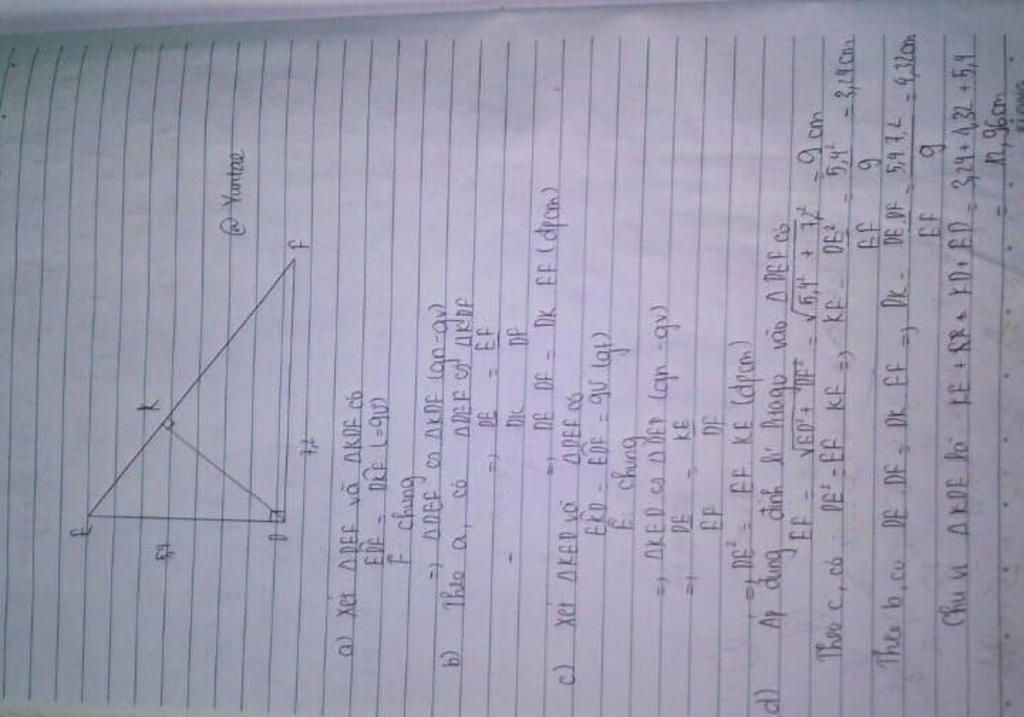 E
K
5,4
D
7,2
F
@ Yuntae
a) Xét ΔDEF và ΔKDF có
EDF = DKF (=90°)
F chung
=> ΔDEF ∽ ΔKDF (gn-gv)
b) Theo a, có ΔDEF ∽ ΔKDF
=> DE/DK = EF/DF
=> DE DF = DK EF (dpcm)
c) Xét ΔKED và ΔDEF có
EKD = EDF = 90° (gt)
E chung
=> ΔKED ∽ ΔDEF (gn-gv)
=> DE/EF = KE/DF
=> DE² = EF KE (dpcm)
d) Áp dụng định lí Pitago vào ΔDEF có
EF = √ED² + DF² = √5,4² + 7,2² = 9 cm
Theo c, có DE² = EF KE => KE = DE²/EF = 5,4²/9 = 3,24 cm
Theo b, có DE . DF = DK EF => DK = DE.DF/EF = 5,4 7,2/9 = 4,32 cm
Chu vi ΔKDE là KE + KD + ED = 3,24 + 4,32 + 5,4
= 12,96cm